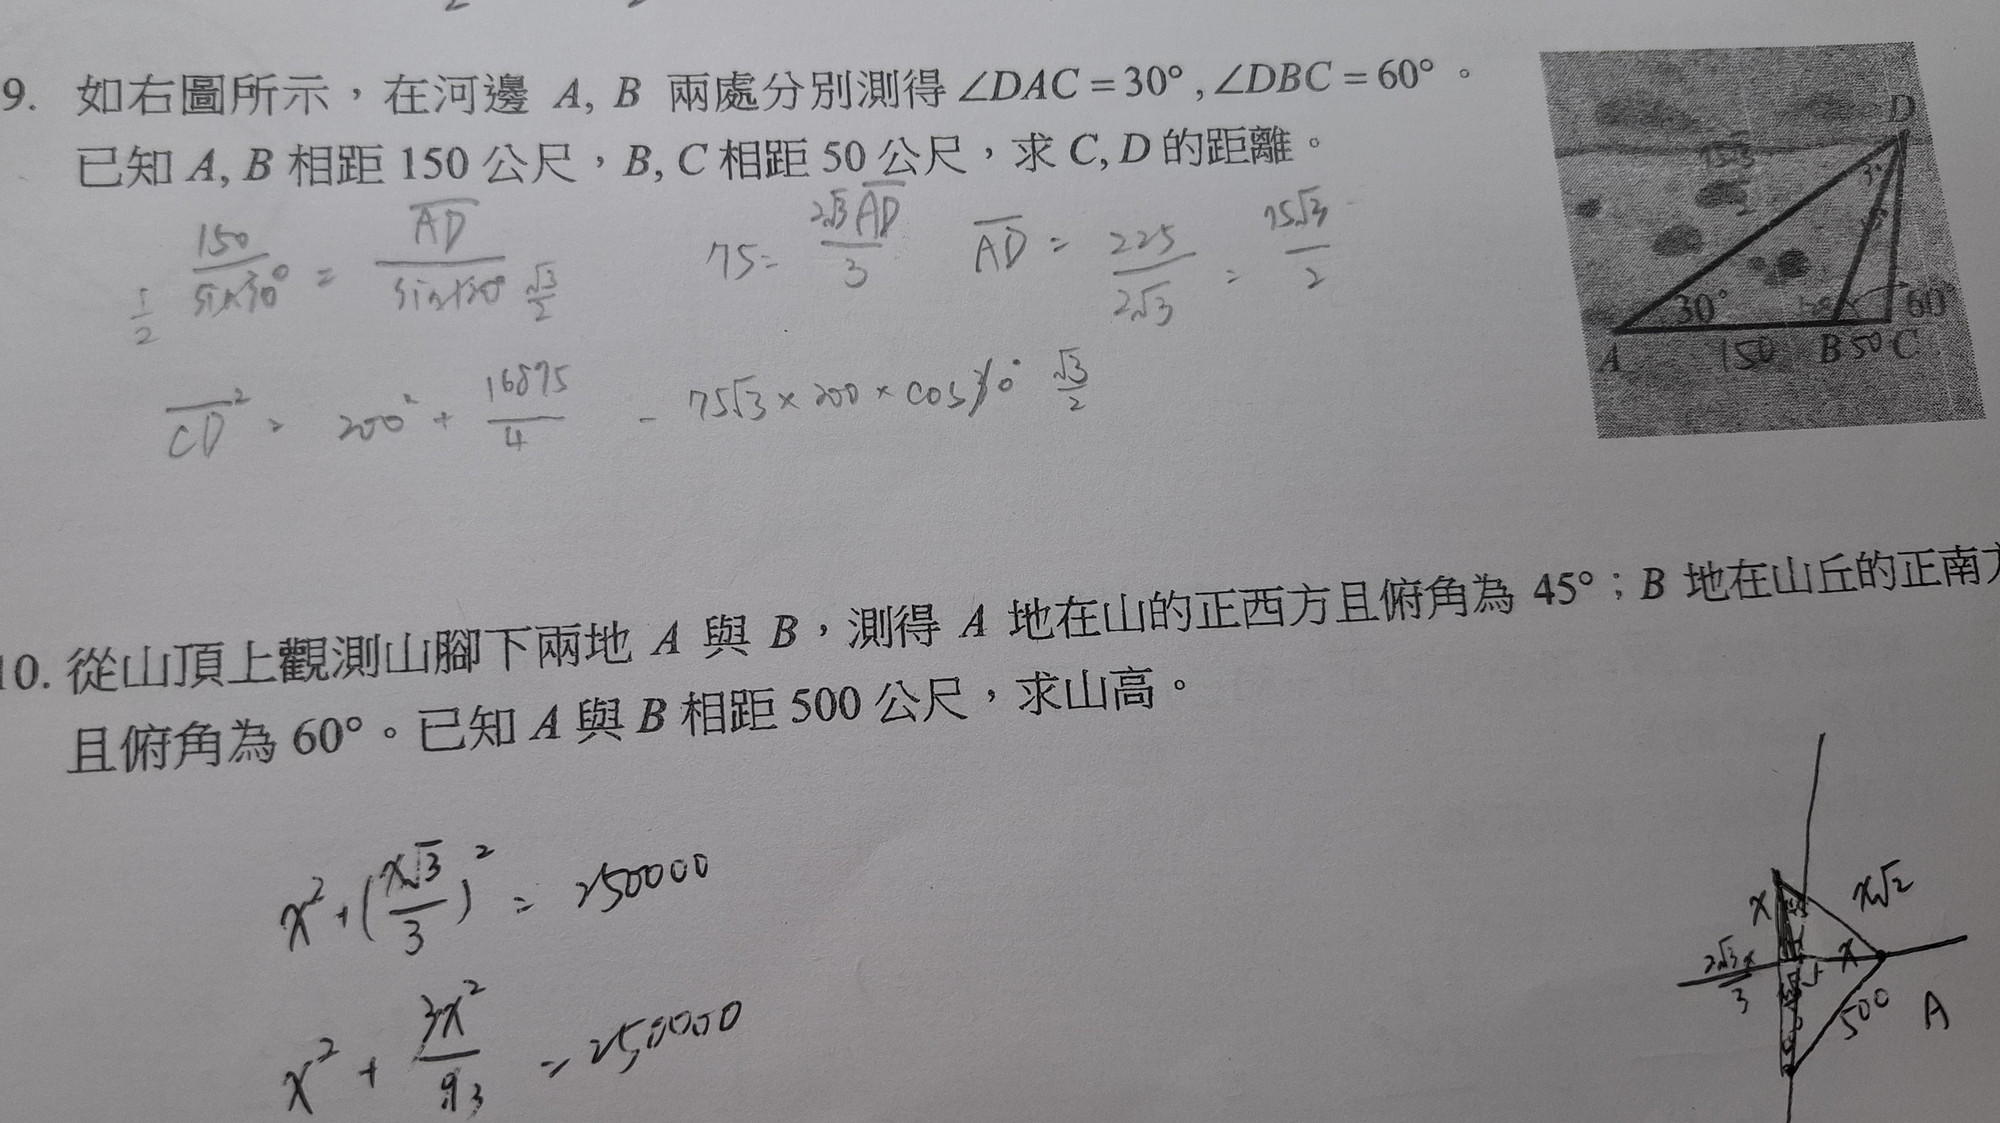 9. 如右圖所示，在河邊 A, B 兩處分別測得 ∠DAC = 30° , ∠DBC = 60° 。
已知 A, B 相距 150 公尺，B, C 相距 50 公尺，求 C, D 的距離。
150/sin30° = AD/sin120° 1/2 √3/2
75 = 2√3 AD/3
AD = 225/2√3 = 75√3/2
CD² = 200² + 16875/4 - 75√3 × 200 × cos30° √3/2
D
30° 60°
A 150 B 50 C
10. 從山頂上觀測山腳下兩地 A 與 B，測得 A 地在山的正西方且俯角為 45°；B 地在山丘的正南
且俯角為 60°。已知 A 與 B 相距 500 公尺，求山高。
x² + (x√3/3)² = 250000
x² + 3x²/9 3 = 250000
x x√2
2√3x/3 x
500 A